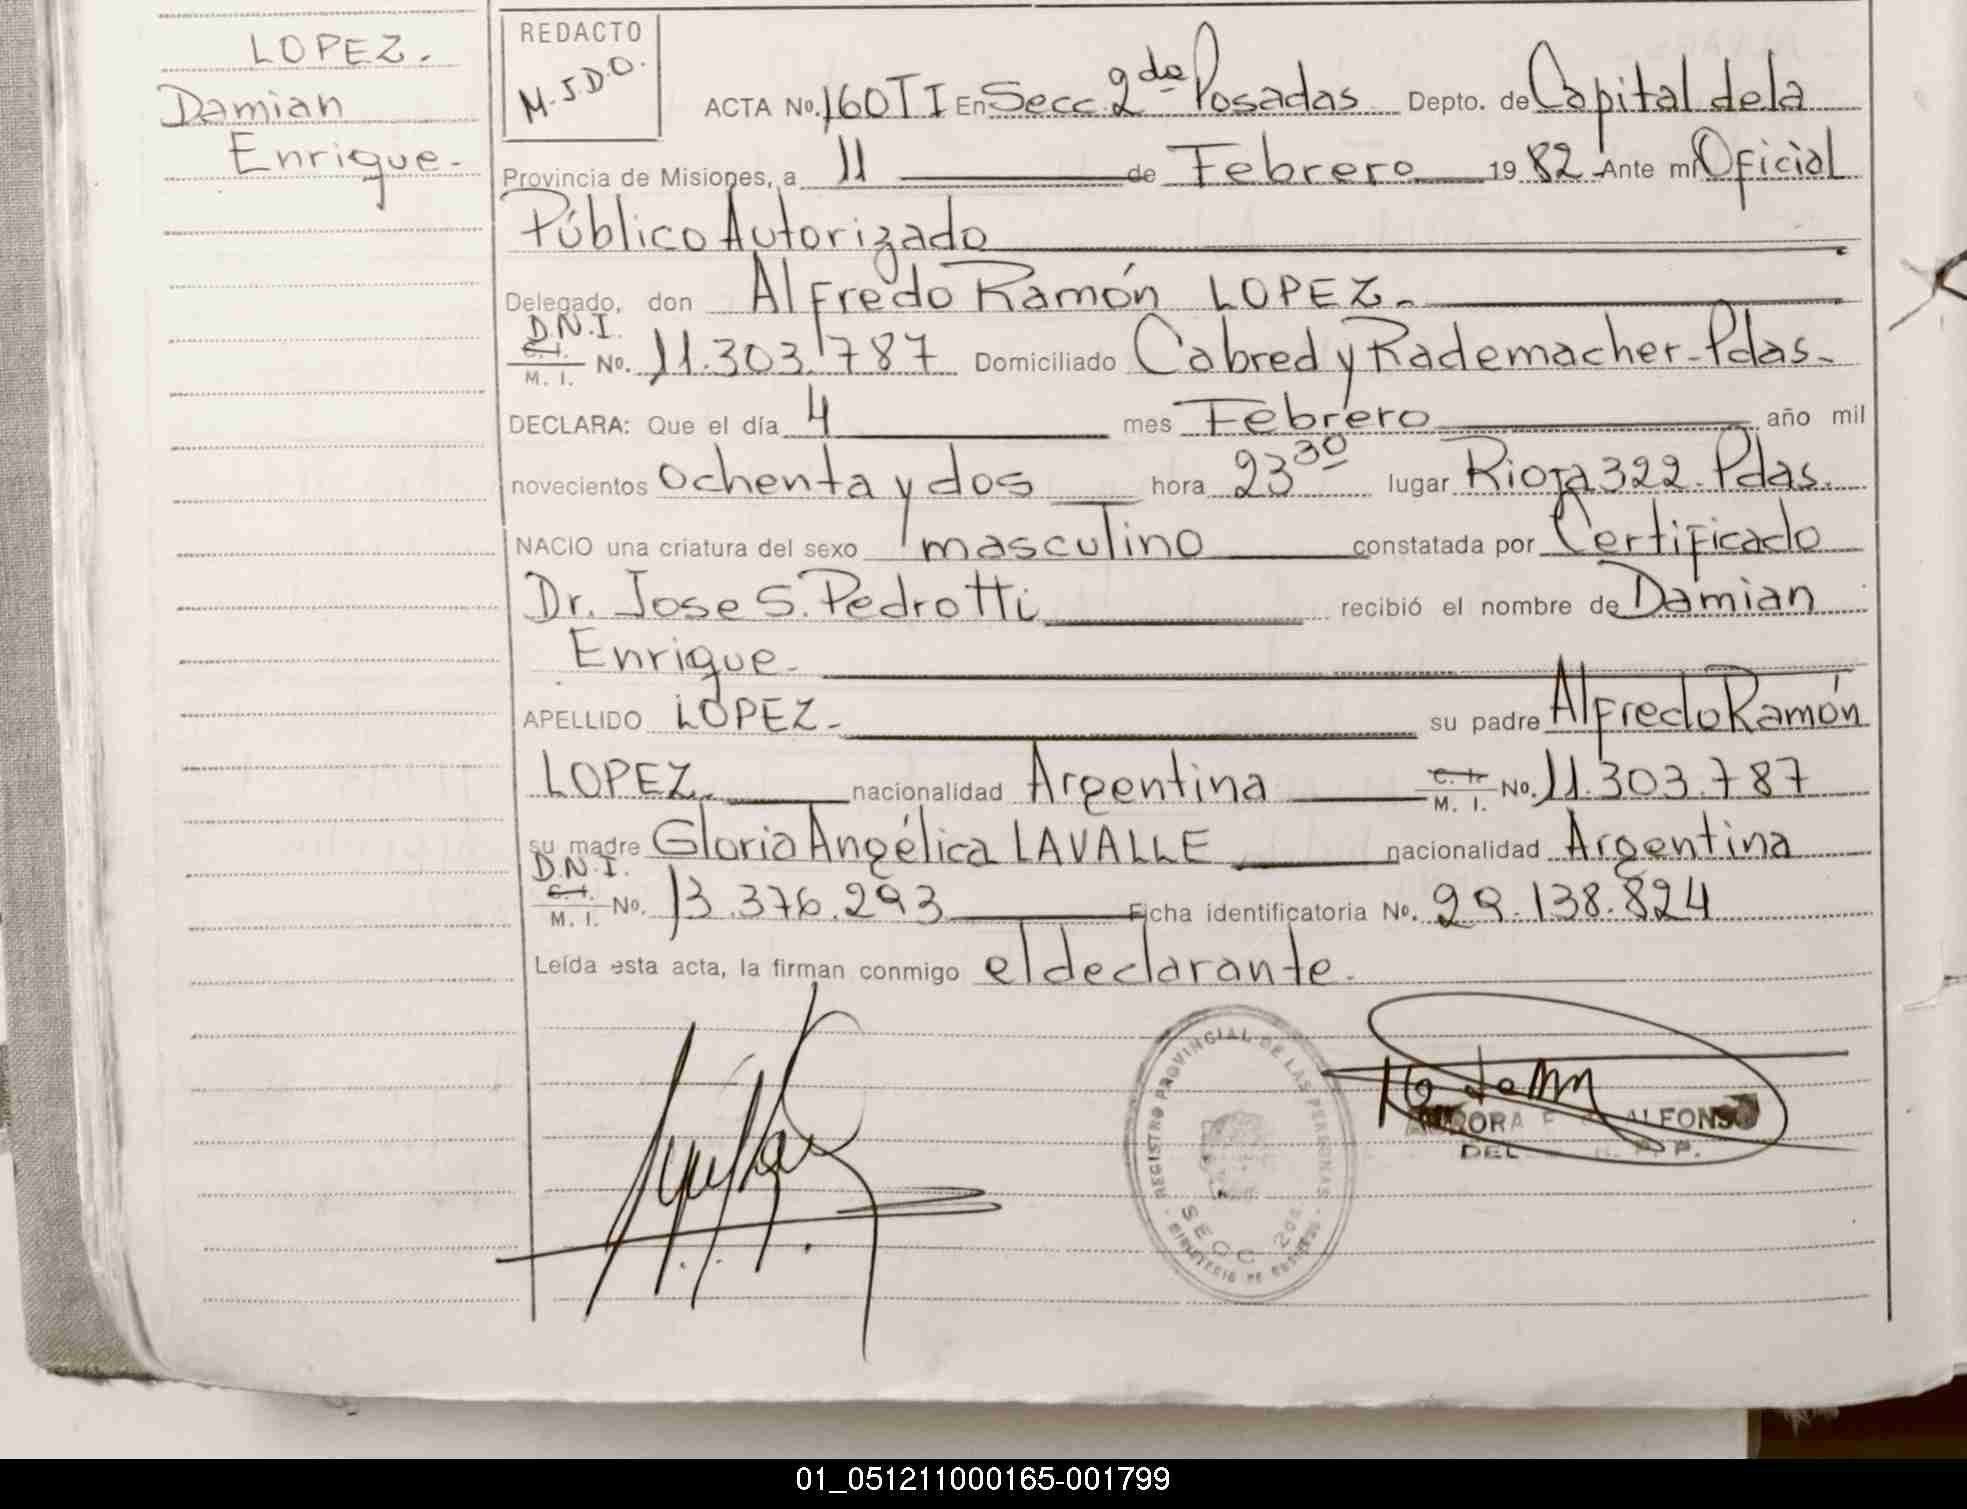 LOPEZ.
Damian
Enrique-
REDACTO
M.J.D.O.
ACTA No. 160 T I En Secc. 2da Posadas Depto. de Capital de la
Provincia de Misiones, a 11 de Febrero 1982 Ante mí Oficial
Público Autorizado
Delegado, don Alfredo Ramón LOPEZ.
D.N.I.
C. I.
M. I. No. 11.303.787 Domiciliado Cabred y Rademacher-Pdas-
DECLARA: Que el día 4 mes Febrero año mil
novecientos ochenta y dos hora 23 30 lugar Rioja 322. Pdas.
NACIO una criatura del sexo masculino constatada por Certificado
Dr. Jose S. Pedrotti recibió el nombre de Damian
Enrique-
APELLIDO LOPEZ- su padre Alfredo Ramón
LOPEZ. nacionalidad Argentina C. I. M. I. No. 11.303.787
su madre Gloria Angélica LAVALLE nacionalidad Argentina
D.N.I.
C. I.
M. I. No. 13.376.293 Ficha identificatoria No. 29.138.824
Leída esta acta, la firman conmigo el declarante.
REGISTRO PROVINCIAL DE LAS PERSONAS
SECC 2da.
MINISTERIO DE GOBIERNO
AURORA ALFONSO
DEL P.
01_051211000165-001799